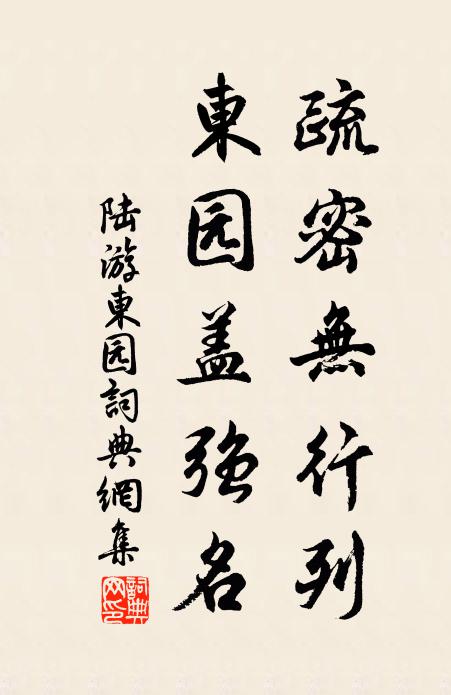 疏密無行列
東园盖強名
陆游東园詞典網集
詞典网印